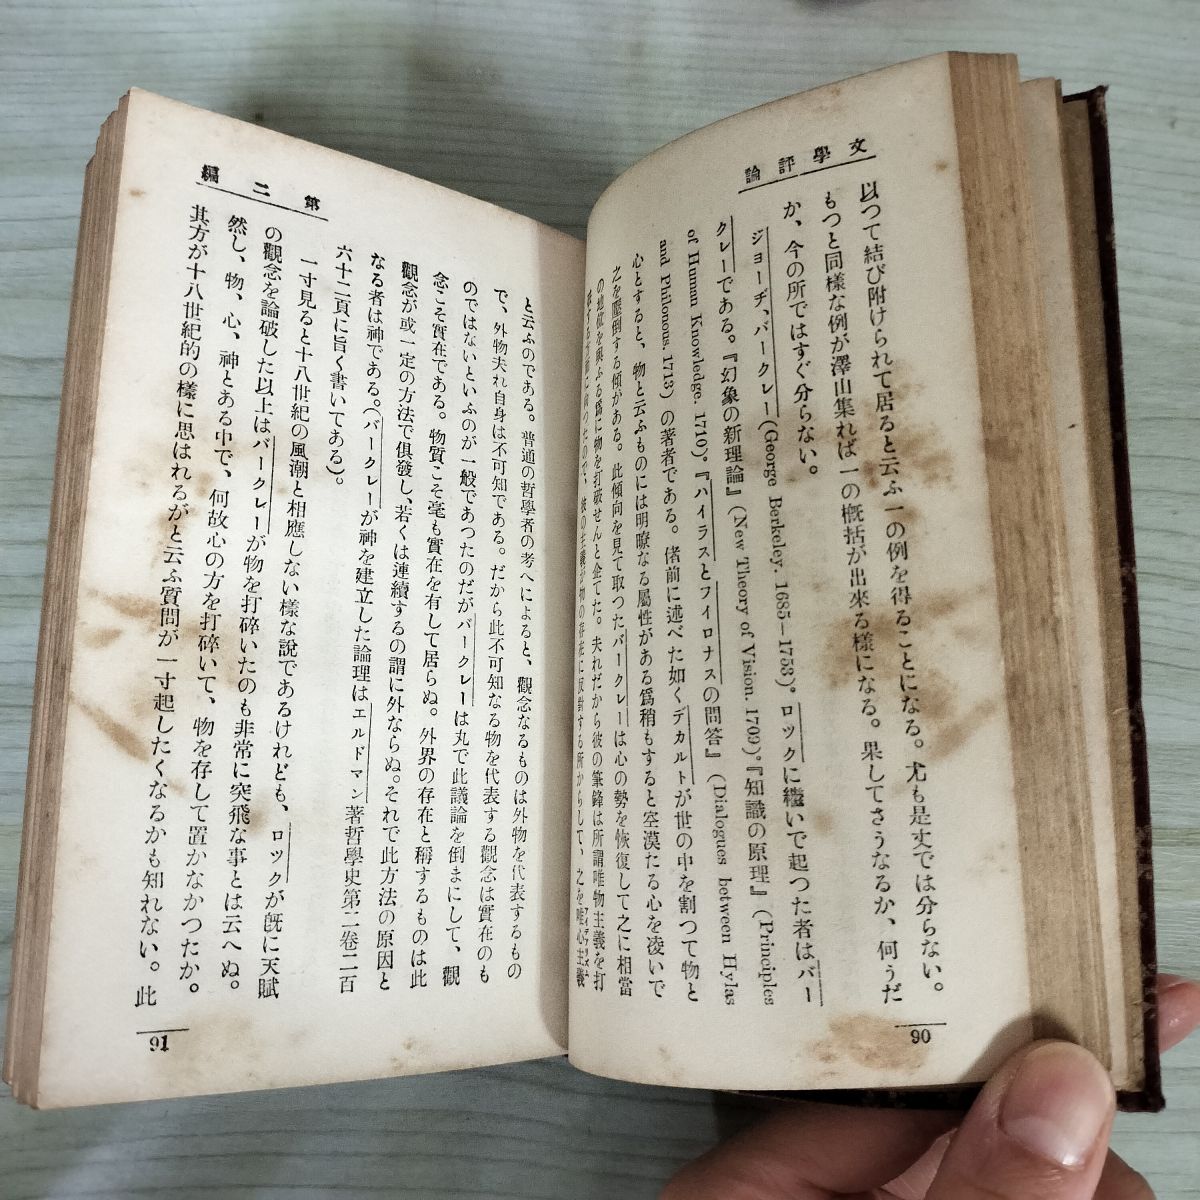 文學評論
以つて結び附けられて居ると云ふ一の例を得ることになる。尤も是丈では分らない。
もつと同樣な例が澤山集れば一の概括が出來る樣になる。果してさうなるか、何うだ
か、今の所ではすぐ分らない。
ジョーヂ、バークレー(George Berkeley. 1685—1753)。ロックに繼いで起つた者はバー
クレーである。『幻象の新理論』(New Theory of Vision. 1709)。『知識の原理』(Principles
of Human Knowledge. 1710)。『ハイラスとフィロナスの問答』(Dialogues between Hylas
and Philonous. 1713) の著者である。偖前に述べた如くデカルトが世の中を割つて物と
心とすると、物と云ふものには明瞭なる屬性がある爲稍もすると空漠たる心を凌いで
之を壓倒する傾がある。此傾向を見て取つたバークレーは心の勢を恢復して之に相當
の地位を與ふる爲に物を打破せんと企てた。夫れだから彼の筆鋒は所謂唯物主義を打
破する方面に向つたので、彼の主義が物の存在に反對する所からして、之を唯心主義
90
第二編
と云ふのである。普通の哲學者の考へによると、觀念なるものは外物を代表するもの
で、外物夫れ自身は不可知である。だから此不可知なる物を代表する觀念は實在のも
のではないといふのが一般であつたのだがバークレーは丸で此議論を倒まにして、觀
念こそ實在である。物質こそ毫も實在を有して居らぬ。外界の存在と稱するものは此
觀念が或一定の方法で俱發し、若くは連續するの謂に外ならぬ。それで此方法の原因と
なる者は神である。(バークレーが神を建立した論理はエルドマン著哲學史第二卷二百
六十二頁に旨く書いてある)。
一寸見ると十八世紀の風潮と相應しない樣な說であるけれども、ロックが旣に天賦
の觀念を論破した以上はバークレーが物を打碎いたのも非常に突飛な事とは云へぬ。
然し、物、心、神とある中で、何故心の方を打碎いて、物を存して置かなかつたか。
其方が十八世紀的の樣に思はれるがと云ふ質問が一寸起したくなるかも知れない。此
91